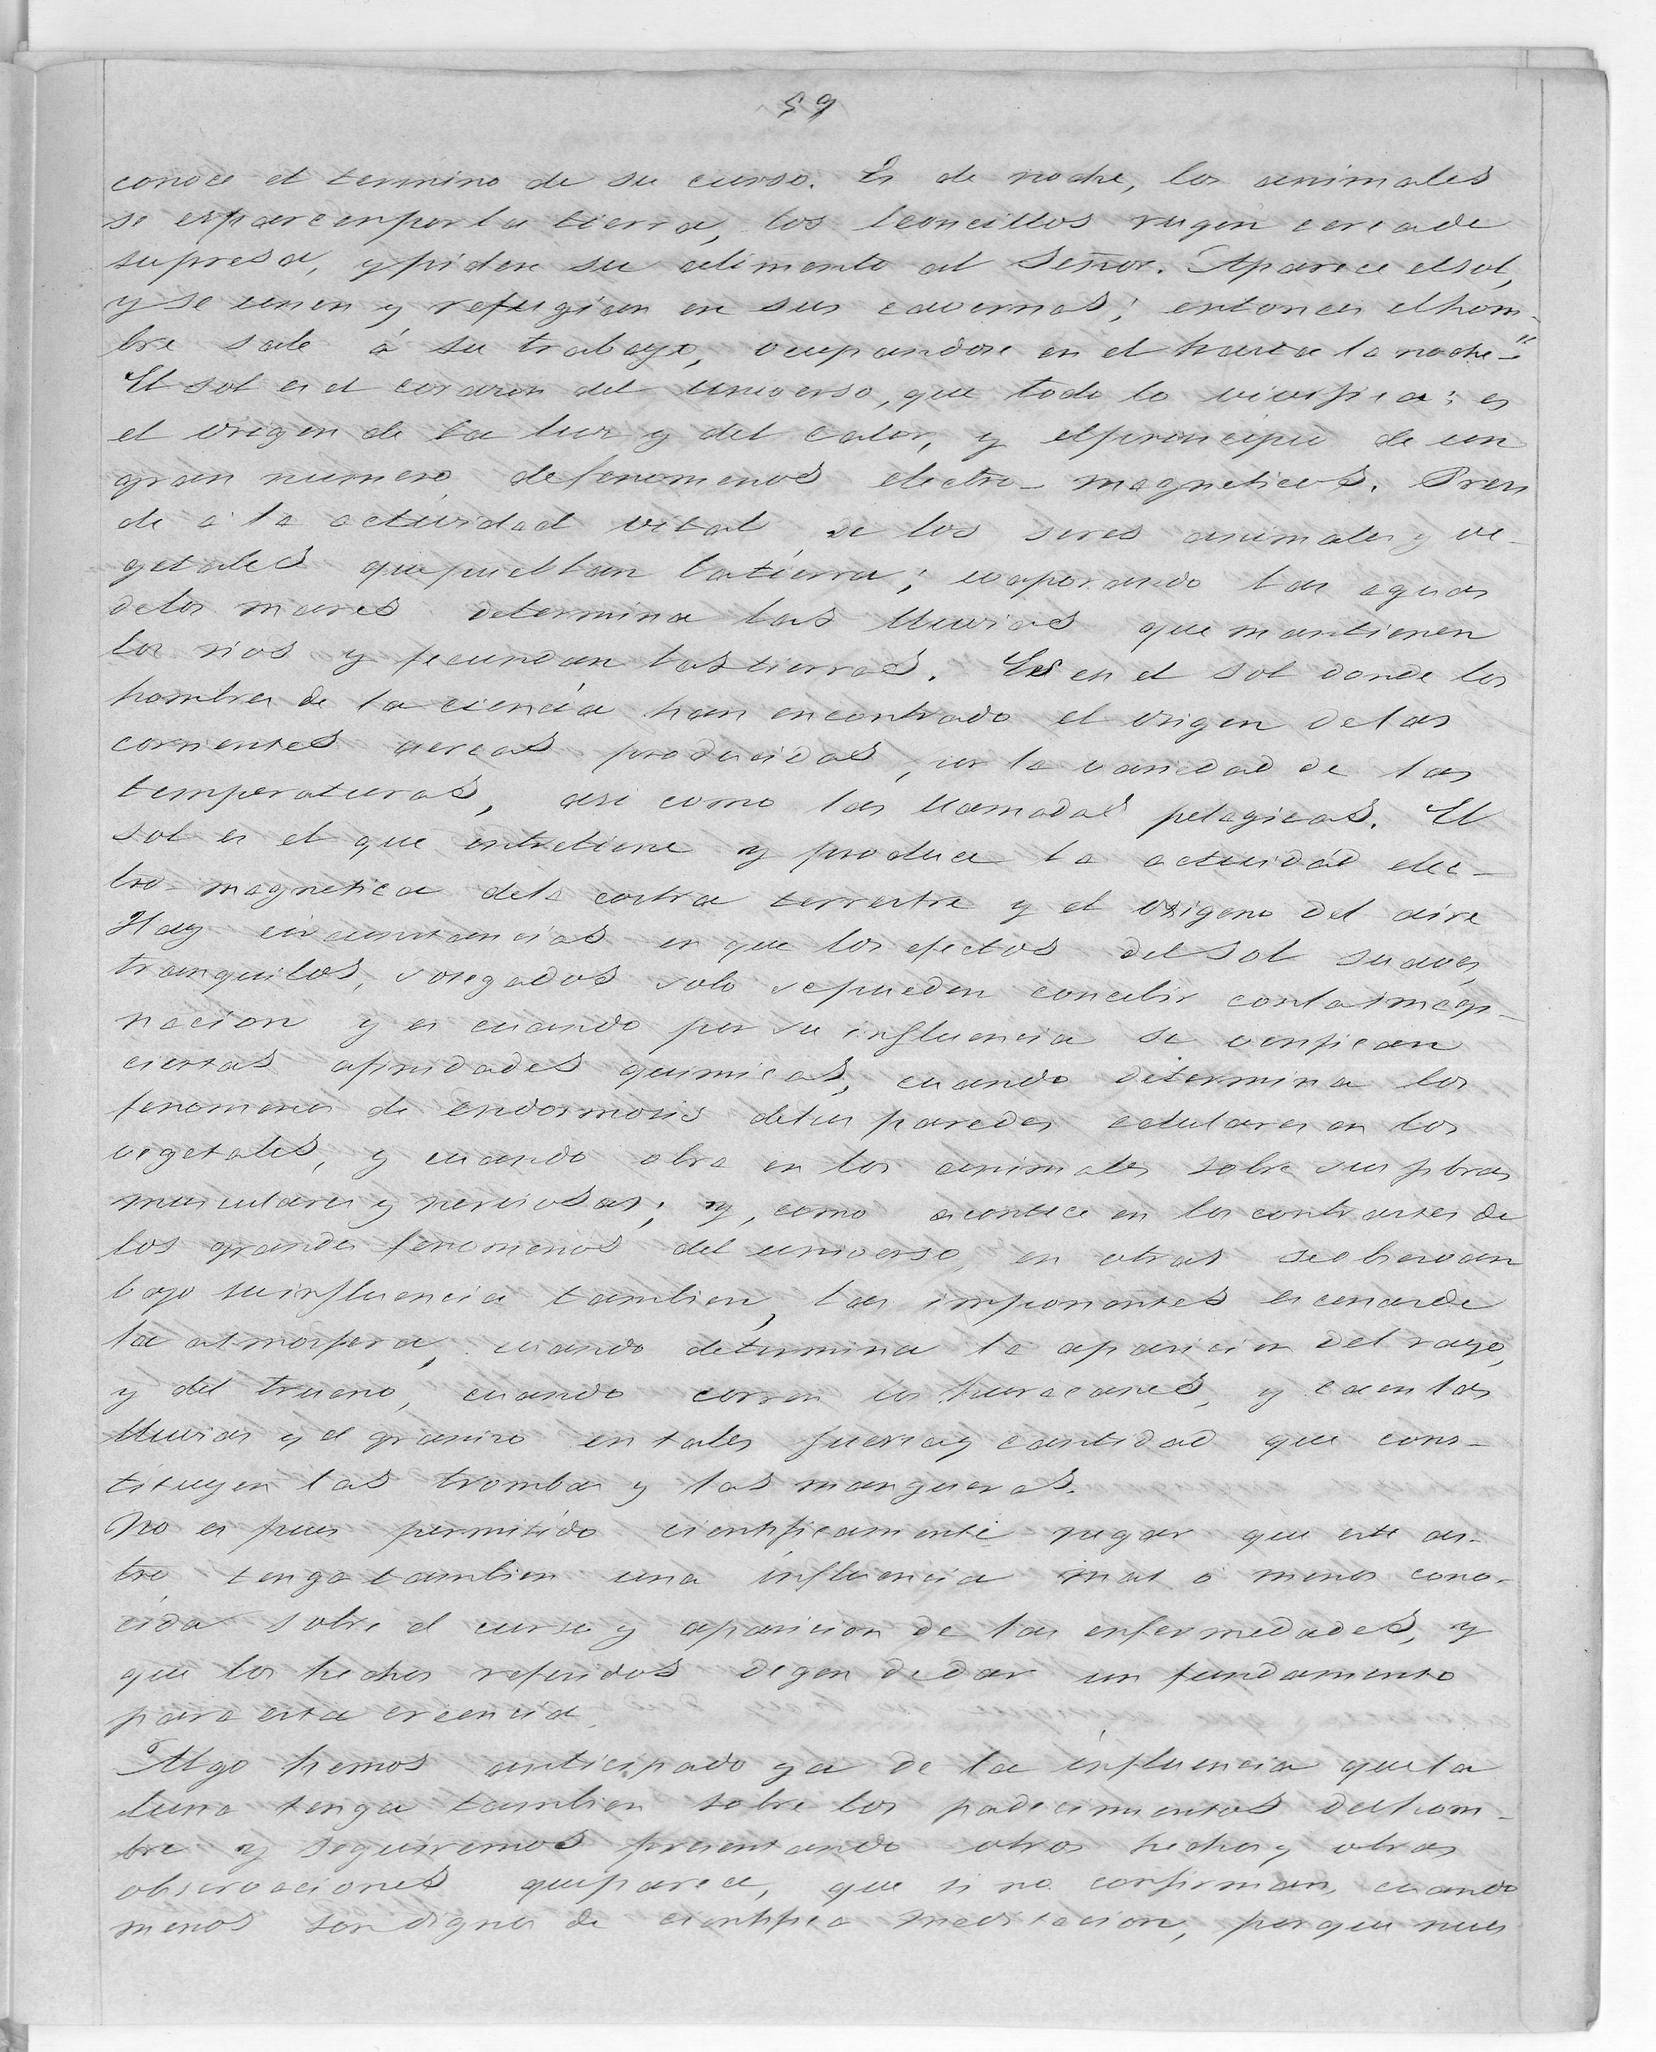 59
conoce el termino de su curso. Es de noche, los animales
se esparcen por la tierra, los leoncillos rugen cerca de
su presa, y piden su alimento al Señor. Aparece el sol,
y se unen y refugian en sus cavernas; entonces el hom-
bre sale á su trabajo, ocupandose en el hasta la noche-"
El sol es el corazon del universo, que todo lo vivifica: es
el origen de la luz y del calor, y el principio de un
gran numero de fenomenos electro-magneticos. Presi
de á la actividad vital de los seres animales y ve-
getales que pueblan la tierra; evaporando las aguas
de los mares determina las lluvias que mantienen
los rios y fecundan las tierras. Es en el sol donde los
hombres de la ciencia han encontrado el origen de las
corrientes aereas producidas por la variedad de las
temperaturas, asi como las llamadas pelagicas. El
sol es el que entretiene y produce la actividad elec-
tro-magnetica de la costra terrestre y el oxigeno del aire
Hay circunstancias en que los efectos del sol suaves,
tranquilos, sosegados solo se pueden concebir con la imagi-
nacion y es cuando por su influencia se verifican
ciertas afinidades quimicas, cuando determina los
fenomenos de endosmosis de las paredes celulares en los
vegetales, y cuando obra en los animales sobre sus fibras
musculares y nerviosas; y, como acontece en los contrastes de
los grandes fenomenos del universo, en otras se observan
bajo su influencia tambien, las imponentes escenas de
la atmosfera, cuando determina la aparicion del rayo,
y del trueno, cuando corren los huracanes, y caen las
lluvias y el granizo en tales fuerza y cantidad que cons-
tituyen las trombas y las mangueras.
No es pues permitido cientificamente negar que este as-
tro tenga tambien una influencia mas o menos cono-
cida sobre el curso y aparicion de las enfermedades, y
que los hechos referidos degen de dar un fundamento
para esta creencia.
Algo hemos anticipado ya de la influencia que la
luna tenga tambien sobre los padecimientos del hom-
bre y seguiremos presentando otros hechos y otras
observaciones que parece, que si no confirman, cuando
menos son dignos de cientifica meditacion, porque nues